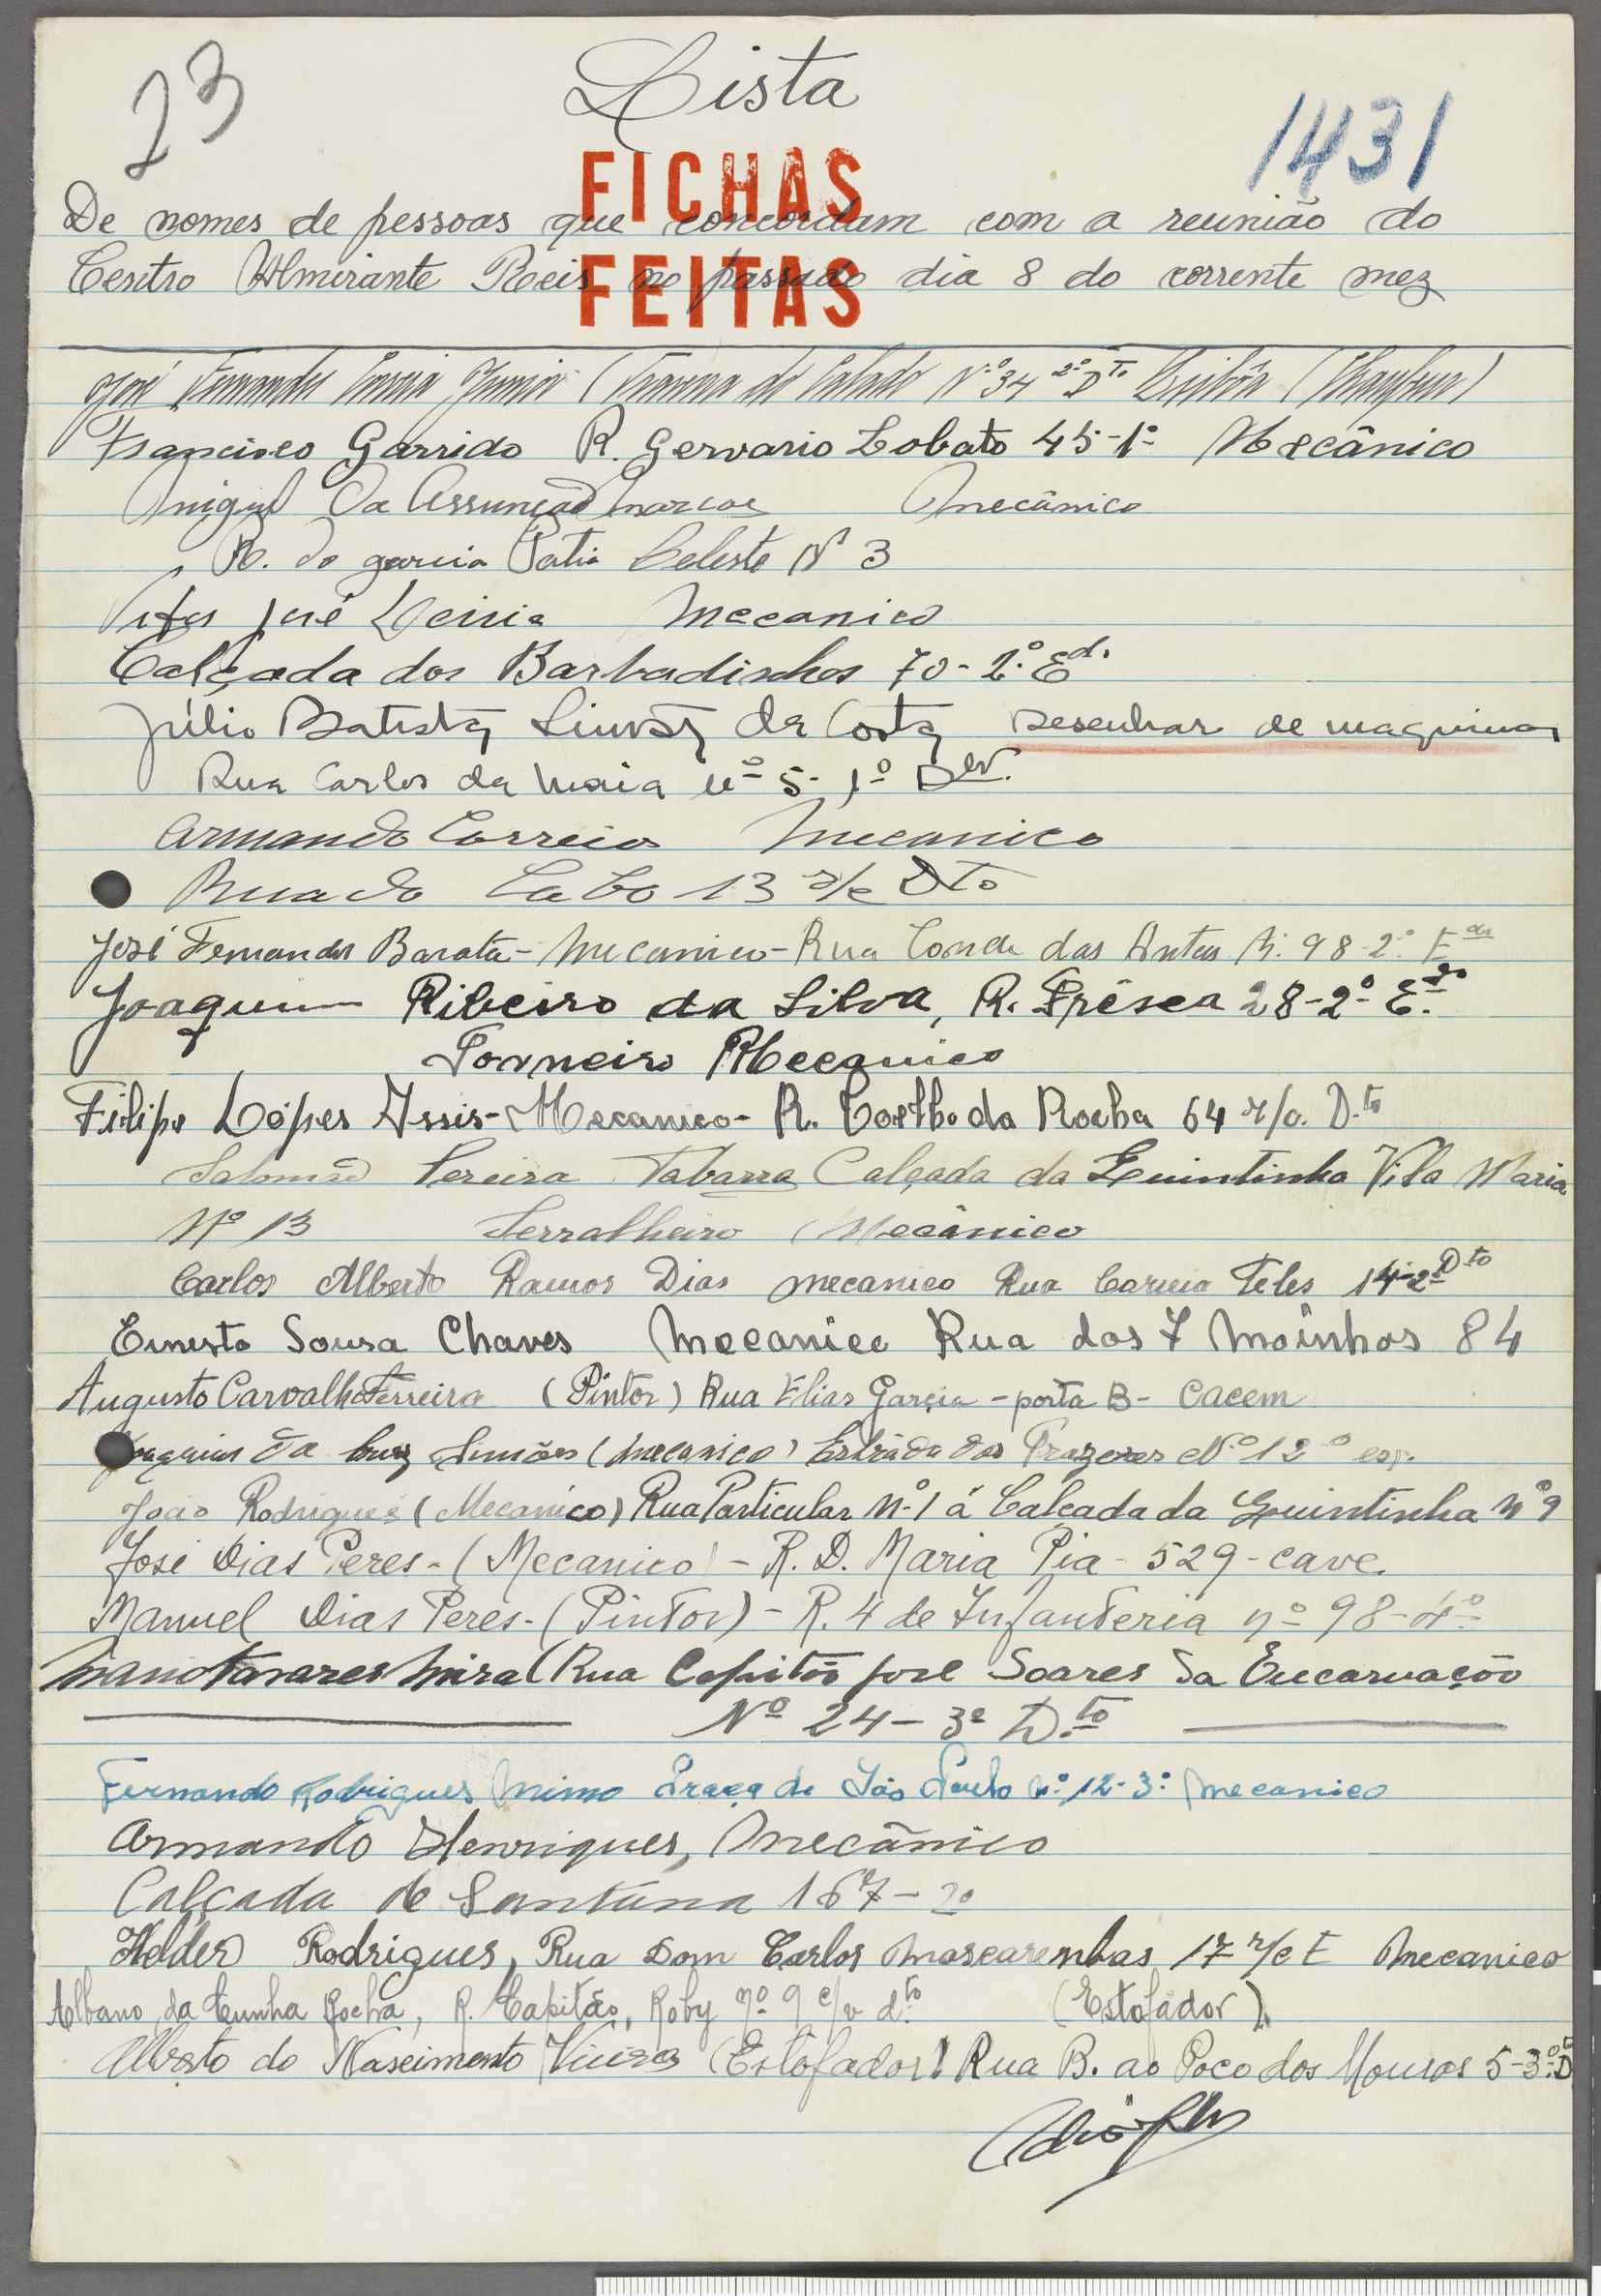 23
Lista
1431
FICHAS
FEITAS
De nomes de pessoas que concordam com a reunião do
Centro Almirante Reis no passado dia 8 do corrente mez
José Fernandes Junior (Travessa do Nº 34 2º Dto Lisbôa
Francisco Garrido R. Gervario Lobato 45-1º Mecânico
Miguel Da Assunção Marcos Mecânico
R. do garcia Patio Celeste Nº 3
Vitor José Leiria Mecanico
Calçada dos Barbadinhos 70-2.º Ed.
Júlio Batista da Costa Desenhar de maquinas
Rua Carlos da Maia nº 5-1º
Armando Correia Mecanico
Rua do Cabo 13 r/c Dto
José Fernandes Barata - Mecanico - Rua Conde das Antas N. 98-2.º
Joaquim Ribeiro da Silva, R. Frêsca 28-2º E.do
Torneiro Mecanico
Filipe Lopes Assis - Mecanico - R. Coelho da Rocha 64 r/c. D.to
Salomão Pereira Tabarra Calçada da Quintinha Vila Maria
Nº 13 Serralheiro Mecânico
Carlos Alberto Ramos Dias mecanico Rua Correia Teles 14-2º Dto
Ernesto Sousa Chaves Mecanico Rua dos 7 Moinhos 84
Augusto Carvalho Ferreira (Pintor) Rua Elias Garcia - porta B - Cacem
Joaquim da Cruz Simões (Mecanico) Estrada dos Prazeres Nº 12 esq.
João Rodrigues (Mecanico) Rua Particular Nº 1 á Calçada da Quintinha nº 9
José Dias Peres - (Mecanico) - R. D. Maria Pia - 529 - cave.
Manuel Dias Peres - (Pintor) - R. 4 de Infanteria nº 98-4º
Mario Tavares Mira (Rua Capitão José Soares da Encarnação
Nº 24 - 3º D.to
Fernando Rodrigues Mimo Praça de São Paulo nº 12-3º Mecanico
Armando Henriques, Mecânico
Calçada de Santana 167-2º
Helder Rodrigues, Rua Dom Carlos Mascarenhas 17 r/c E Mecanico
Albano da Cunha Rocha, R. Capitão, Roby nº 9 c/v d.to (Estofador).
Alberto do Nascimento Vieira (Estofador) Rua B. ao Poço dos Mouros 5-3º D